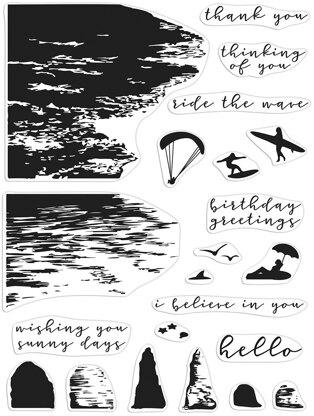 thank you
thinking
of you
ride the wave
birthday
greetings
i believe in you
wishing you
sunny days
hello